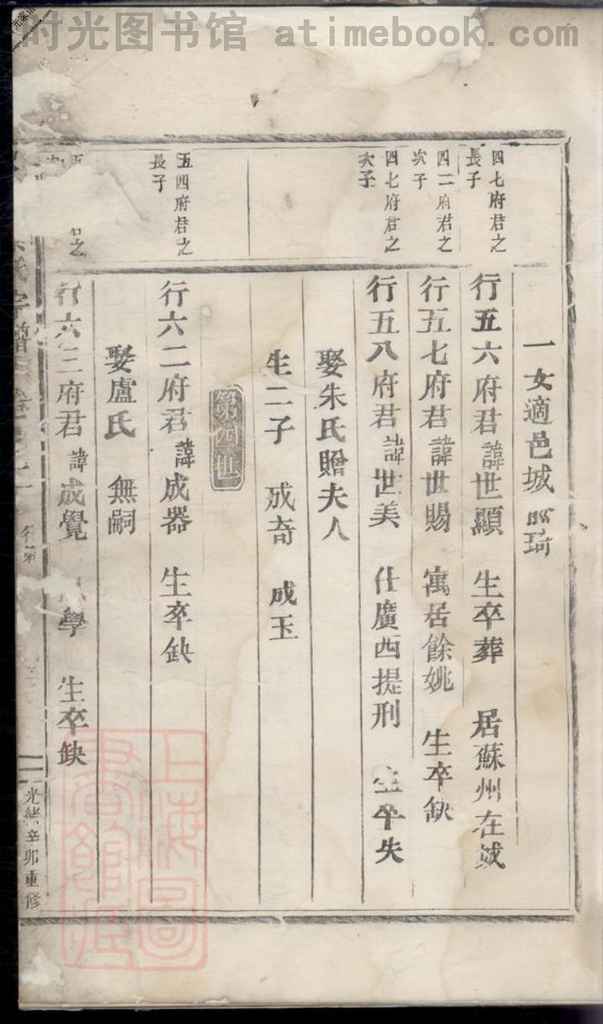 时光图书馆 atimebook.com
一女適邑城
四七府君之
長子
行五六府君諱世顯 生卒葬 居蘇州在城
四二府君之
次子
行五七府君諱世賜 寓居餘姚 生卒缺
四七府君之
次子
行五八府君諱世美 仕廣西提刑 生卒失
娶朱氏贈夫人
生二子 成奇 成玉
第四世
五四府君之
長子
行六二府君諱成器 生卒缺
娶盧氏 無嗣
行六三府君諱成覺 學 生卒缺
光緒辛卯重修
上海圖書館藏